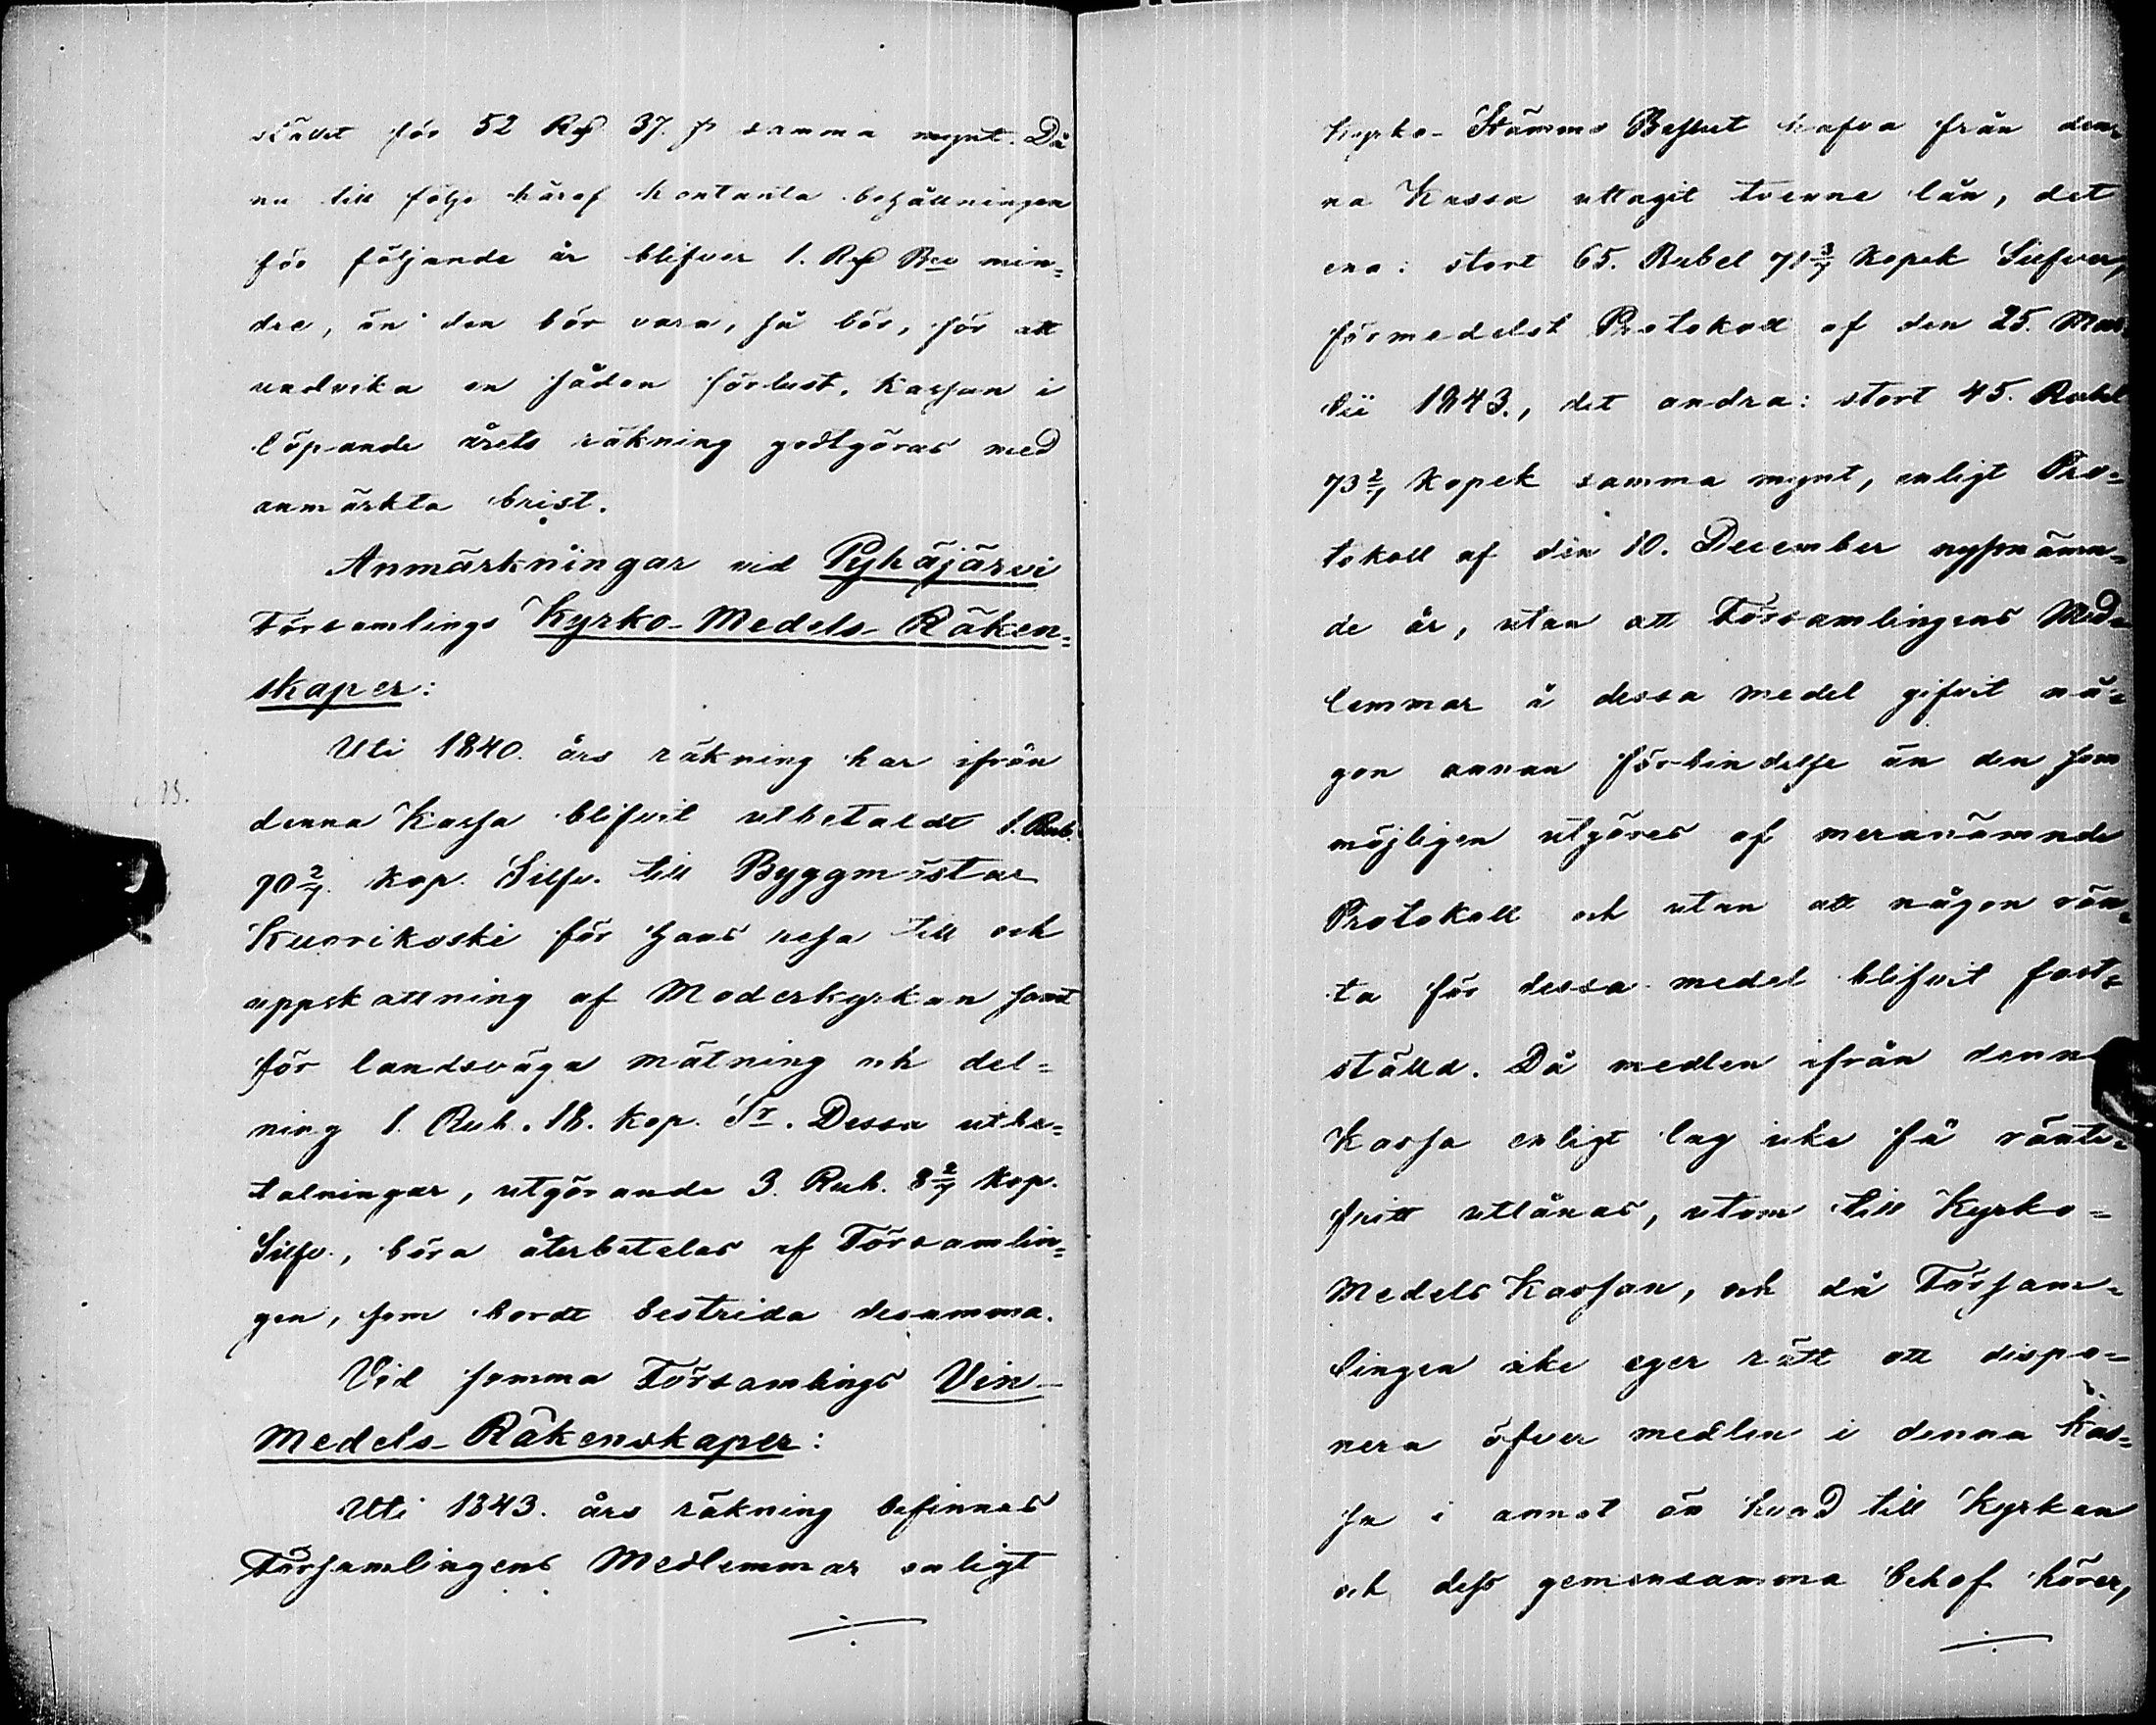 för 52 Rд 37. ß samma mynt. Då
nu till följe häraf kontanta behållningen
för följande år blifver 1. Rд Bco min=
dre, än den bör vara, så bör, för att
undvika en sådan förlust, Kassan i
löpande årets räkning godtgöras med
anmärkta brist.
Anmärkningar vid Pyhäjärvi
Församlings Kyrko-Medels-Räken=
skaper:
Uti 1840. års räkning har ifrån
denna Kassa blifvit utbetaldt 1. Rub.
90 2/7. Kop. Silfv. till Byggmästar
Kuorikoski för hans resa till och
uppskattning af Moderkyrkan samt
för landsväga mätning och del=
ning 1. Rub. 18. Kop. Sr. Dessa utbe=
talningar, utgörande 3. Rub. 8 2/7 Kop.
Silfv., böra återbetalas af Församlin=
gen, som bordt bestrida desamma.
Vid samma Församlings Vin-
Medels-Räkenskaper:
Uti 1843. års räkning befinnas
Församlingens Medlemmar enligt
Kyrko-Stämmo Beslut hafva från den=
na Kassa uttagit tvenne lån, det
ena: stort 65. Rubel 71 3/7 Kopek Silfver,
förmedelst Protokoll af den 25. Mar
tii 1843., det andra: stort 45. Rubel
73 2/7 Kopek samma mynt, enligt Pro=
tokoll af den 10. December nyssnämn=
de år, utan att Församlingens Med=
lemmar å dessa medel gifvit nå=
gon annan förbindelse än den som
möjligen utgöres af meranämnde
Protokoll och utan att någon rän=
ta för dessa medel blifvit fast=
ställd. Då medlen ifrån denna
Kassa enligt lag icke få ränte=
fritt utlånas, utom till Kyrko=
Medels Kassan, och då Försam=
lingen icke eger rätt att dispo=
nera öfver medlen i denna Kas=
sa i annat än hvad till Kyrkan
och dess gemensamma behof hörer,